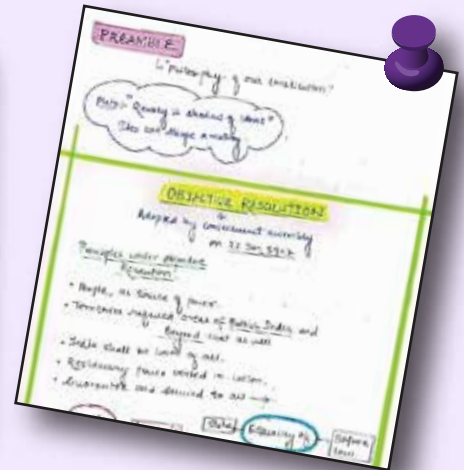 PREAMBLE
"philosophy of our constitution"
Plato: "Reality is shadow of ideas"
Idea can shape reality
OBJECTIVE RESOLUTION
Adopted by constituent assembly
on 22 Jan, 1947
Principles under objective
Resolution:
• People, as source of power.
• Territories required areas of British India and
Beyond that as well
• India shall be of all.
• Residuary power vested in union.
• Guarantee and secured to all →
Equality of
Before
law